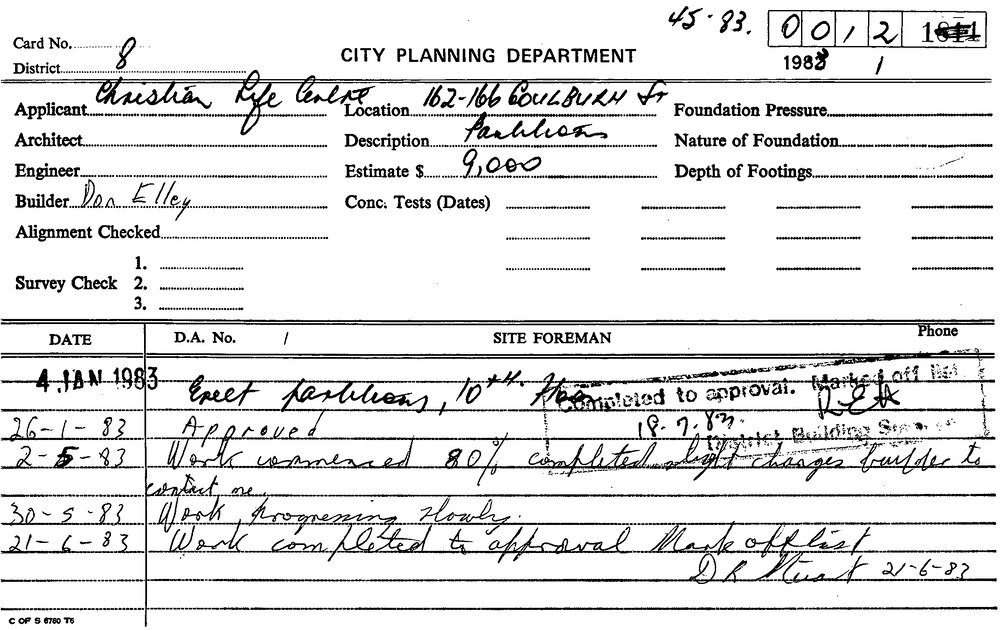 45-83. 0012 1811
Card No.
1983 1
District 8
CITY PLANNING DEPARTMENT
Applicant Christian Life Centre Location 162-166 GOULBURN St Foundation Pressure
Architect Description Partitions Nature of Foundation
Engineer Estimate $ 9,000 Depth of Footings
Builder Don Elley Conc. Tests (Dates)
Alignment Checked
1.
Survey Check 2.
3.
DATE D.A. No. / SITE FOREMAN Phone
4 JAN 1983 Erect partitions, 10th Floor
Completed to approval. Marked off list
18.7.83.
District Building
26-1-83 Approved
2-5-83 Work commenced 80% completed slight changes builder to
contact me.
30-5-83 Work progressing slowly.
21-6-83 Work completed to approval Mark off list
D R Stuart 21-6-83
C OF S 6780 T6